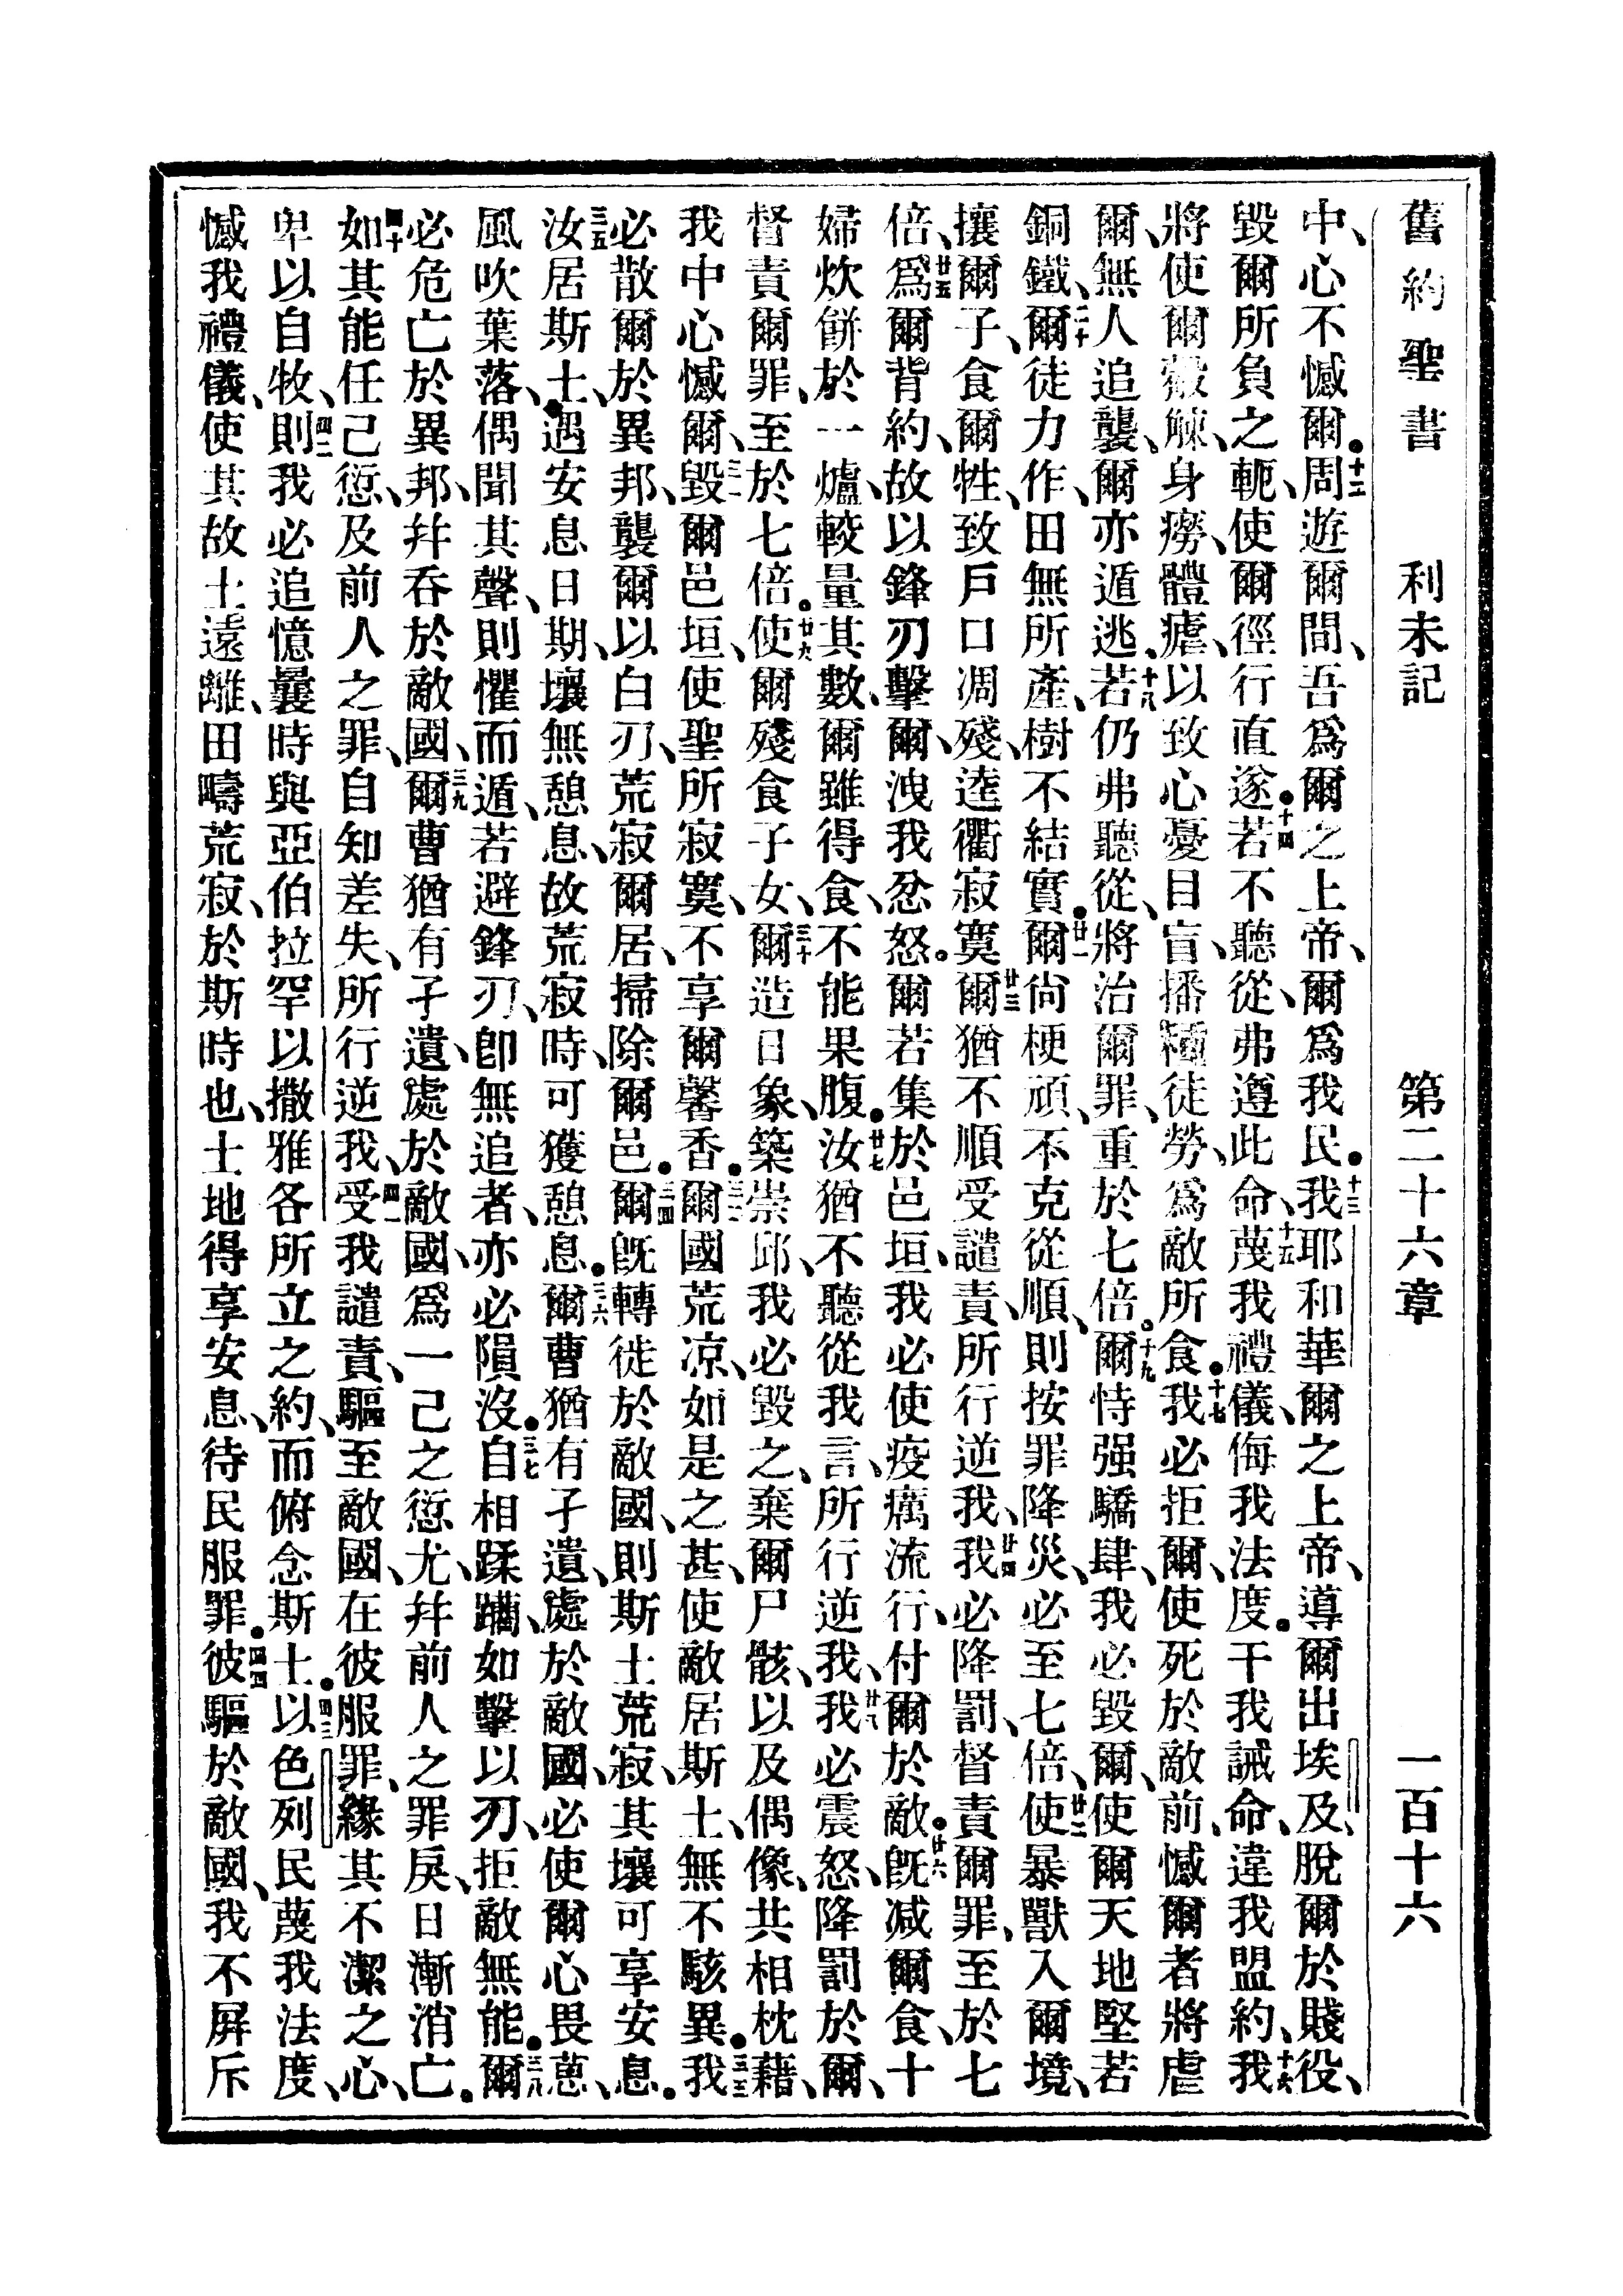 舊約聖書 利未記 第二十六章 一百十六
中、心不憾爾。十二周遊爾間、吾爲爾之上帝、爾爲我民。十三我耶和華爾之上帝、導爾出埃及、脫爾於賤役、
毀爾所負之軛、使爾徑行直遂。十四若不聽從、弗遵此命、十五蔑我禮儀、侮我法度。干我誡命、違我盟約、十六我
將使爾觳觫、身癆、體瘧、以致心憂目盲、播種徒勞、爲敵所食。十七我必拒爾、使死於敵前、憾爾者將虐
爾、無人追襲、爾亦遁逃。十八若仍弗聽從、將治爾罪、重於七倍。十九爾恃强驕肆、我必毀爾、使爾天地堅若
銅鐵、二十爾徒力作、田無所產、樹不結實。廿一爾尙梗頑、不克從順、則按罪降災、必至七倍、廿二使暴獸入爾境、
攘爾子、食爾牲、致戶口凋殘、逵衢寂寞、廿三爾猶不順受譴責、所行逆我、廿四我必降罰、督責爾罪、至於七
倍、廿五爲爾背約、故以鋒刃擊爾、洩我忿怒。爾若集於邑垣、我必使疫癘流行、付爾於敵。廿六旣减爾食、十
婦炊餅於一爐、較量其數、爾雖得食、不能果腹。廿七汝猶不聽從我言、所行逆我、廿八我必震怒、降罰於爾、
督責爾罪、至於七倍。廿九使爾殘食子女、三十爾造日象、築崇邱、我必毀之、棄爾尸骸、以及偶像、共相枕藉、
我中心憾爾、三一毀爾邑垣、使聖所寂寞、不享爾馨香。三二爾國荒凉、如是之甚、使敵居斯土、無不駭異。三三我
必散爾於異邦、襲爾以白刃、荒寂爾居、掃除爾邑。三四爾旣轉徙於敵國、則斯土荒寂、其壤可享安息。
三五汝居斯土、遇安息日期、壤無憩息、故荒寂時、可獲憩息。三六爾曹猶有孑遺、處於敵國、必使爾心畏葸、
風吹葉落、偶聞其聲、則懼而遁、若避鋒刃、卽無追者、亦必隕沒。三七自相蹂躪、如擊以刃、拒敵無能。三八爾
必危亡於異邦、幷吞於敵國、三九爾曹猶有孑遺、處於敵國、爲一己之愆尤、幷前人之罪戾、日漸消亡。
四十如其能任己愆、及前人之罪、自知差失、所行逆我、四一受我譴責、驅至敵國、在彼服罪、緣其不潔之心、
卑以自牧、四二則我必追憶曩時與亞伯拉罕以撒雅各所立之約、而俯念斯土。四三以色列民蔑我法度、
憾我禮儀、使其故土遠離、田疇荒寂、於斯時也、土地得享安息、待民服罪。四四彼驅於敵國、我不屏斥